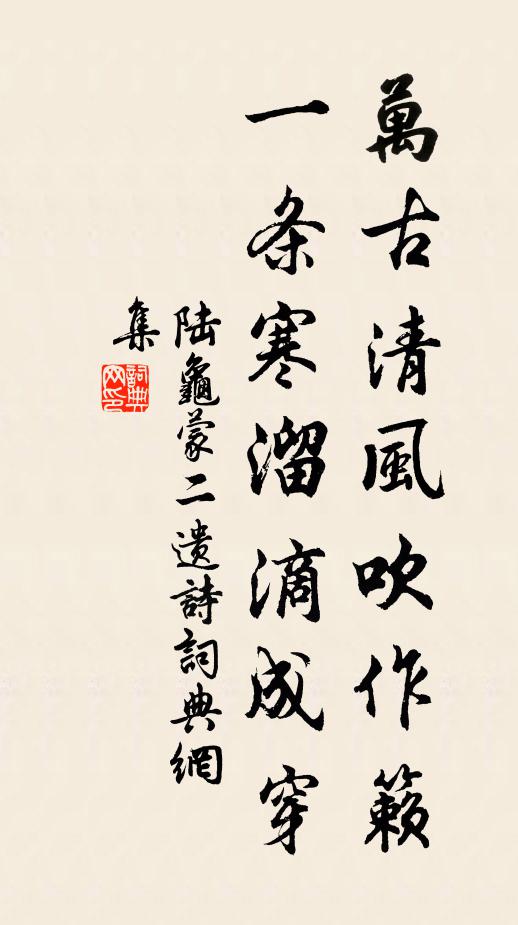 萬古清風吹作籟
一条寒溜滴成穿
陆龜蒙二遺詩詞典網
集
詞典
网印